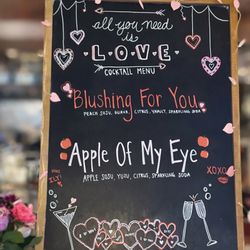 all you need
is
L·O·V·E
COCKTAIL MENU
Blushing For You
PEACH SOJU, GUAVA, CITRUS, YAKULT, SPARKLING SODA
Apple Of My Eye
APPLE SOJU, YUZU, CITRUS, SPARKLING SODA
XOXO
ILY!